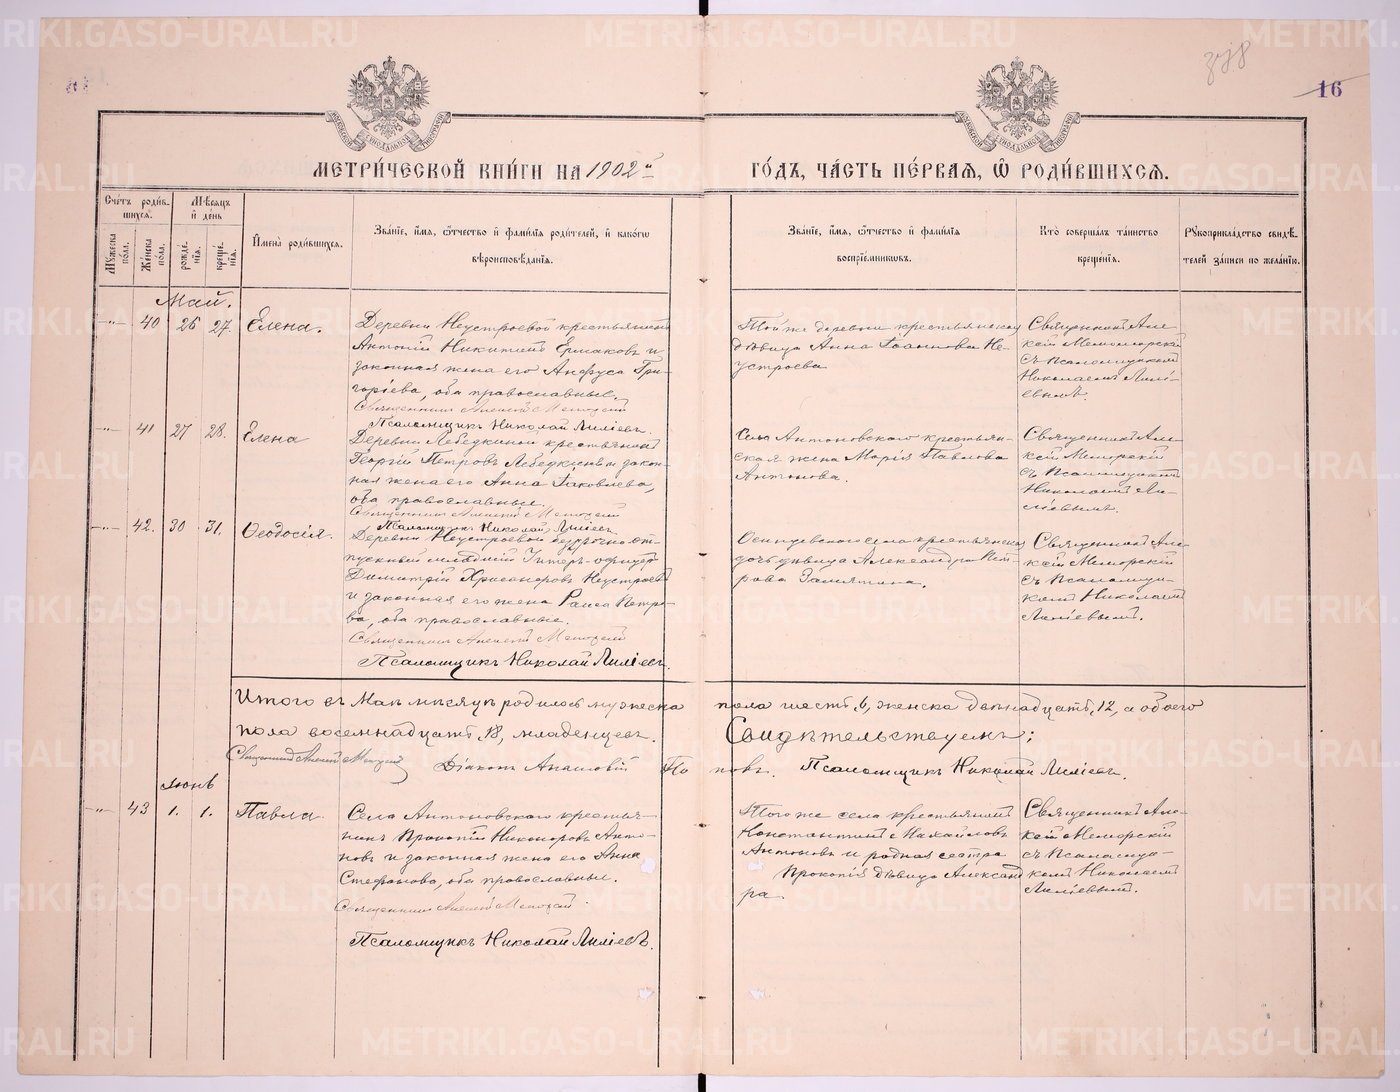 METRIKI.GASO-URAL.RU
16
МЕТРИ́ЧЕСКОЙ КНИ́ГИ НА 1902 й
ГО́ДЪ, ЧА́СТЬ ПЕ́РВАЯ, Ѡ РОДИ́ВШИХСЯ.
Сче́тъ роди́в-
шихся.
Мѣ́сяцъ
и де́нь
Му́жеска по́ла.
Же́нска по́ла.
рожде́-
нія.
креще́-
нія.
Имена̀ роди́вшихся.
Зва́ніе, и́мя, ѻ́тчество и фами́лія роди́телей, и како́гѡ
вѣроисповѣ́данія.
Зва́ніе, и́мя, ѻ́тчество и фами́лія
воспріе́мниковъ.
Кто̀ соверша́лъ та́инство
креще́нія.
Рукоприкла́дство свидѣ́-
телей за́писи по жела́нію.
Май.
-"- 40 26 27. Елена.
Деревни Неустроевой крестьянинъ
Антоній Никитинъ Ермаковъ и
законная жена его Анфуса Гри-
горіева, оба православные.
Священникъ Алексій Меморскій
Псаломщикъ Николай Лиліевъ.
Той же деревни крестьянская
дѣвица Анна Іоаннова Не-
устроева
Священникъ Але-
ксій Меморскій
съ Псаломщикомъ
Николаемъ Лилі-
евымъ.
-"- 41 27 28. Елена
Деревни Лебедкиной крестьянинъ
Георгій Петровъ Лебедкинъ и закон-
ная жена его Анна Іаковлева,
оба православные.
Священникъ Алексій Меморскій
Псаломщикъ Николай Лиліевъ
Села Антоновского крестьян-
ская жена Марія Павлова
Антонова.
Священникъ Але-
ксій Меморскій
съ Псаломщикомъ
Николаемъ Ли-
ліевымъ.
-"- 42. 30 31. Ѳеодосія.
Деревни Неустроевой безсрочно-от-
пускный младшій Унтеръ-офицеръ
Димитрій Хрисанфовъ Неустроевъ
и законная его жена Раиса Петро-
ва, оба православные.
Священникъ Алексій Меморскій
Псаломщикъ Николай Лиліевъ.
Осинцевского села крестьянская
дочь дѣвица Александра Пет-
рова Замятина.
Священникъ Але-
ксій Меморскій
съ Псаломщи-
комъ Николаемъ
Лиліевымъ.
Итого въ Маѣ мѣсяцѣ родилось мужеска пола шесть 6, женска двѣнадцать 12, а обоего
пола восемнадцать 18, младенцевъ. Свидѣтельствуемъ:
Священникъ Алексій Меморскій Діаконъ Поповъ. Псаломщикъ Николай Лиліевъ.
Іюнь
-"- 43 1. 1. Павла.
Села Антоновского крестья-
нинъ Прокопій Никаноровъ Анто-
новъ и законная жена его Анна
Стефанова, оба православные.
Священникъ Алексій Меморскій.
Псаломщикъ Николай Лиліевъ.
Того же села крестьянинъ
Константинъ Михайловъ
Антоновъ и родная сестра
Прокопія дѣвица Александ
ра
Священникъ Але-
ксій Меморскій
съ Псаломщи-
комъ Николаемъ
Лиліевымъ.